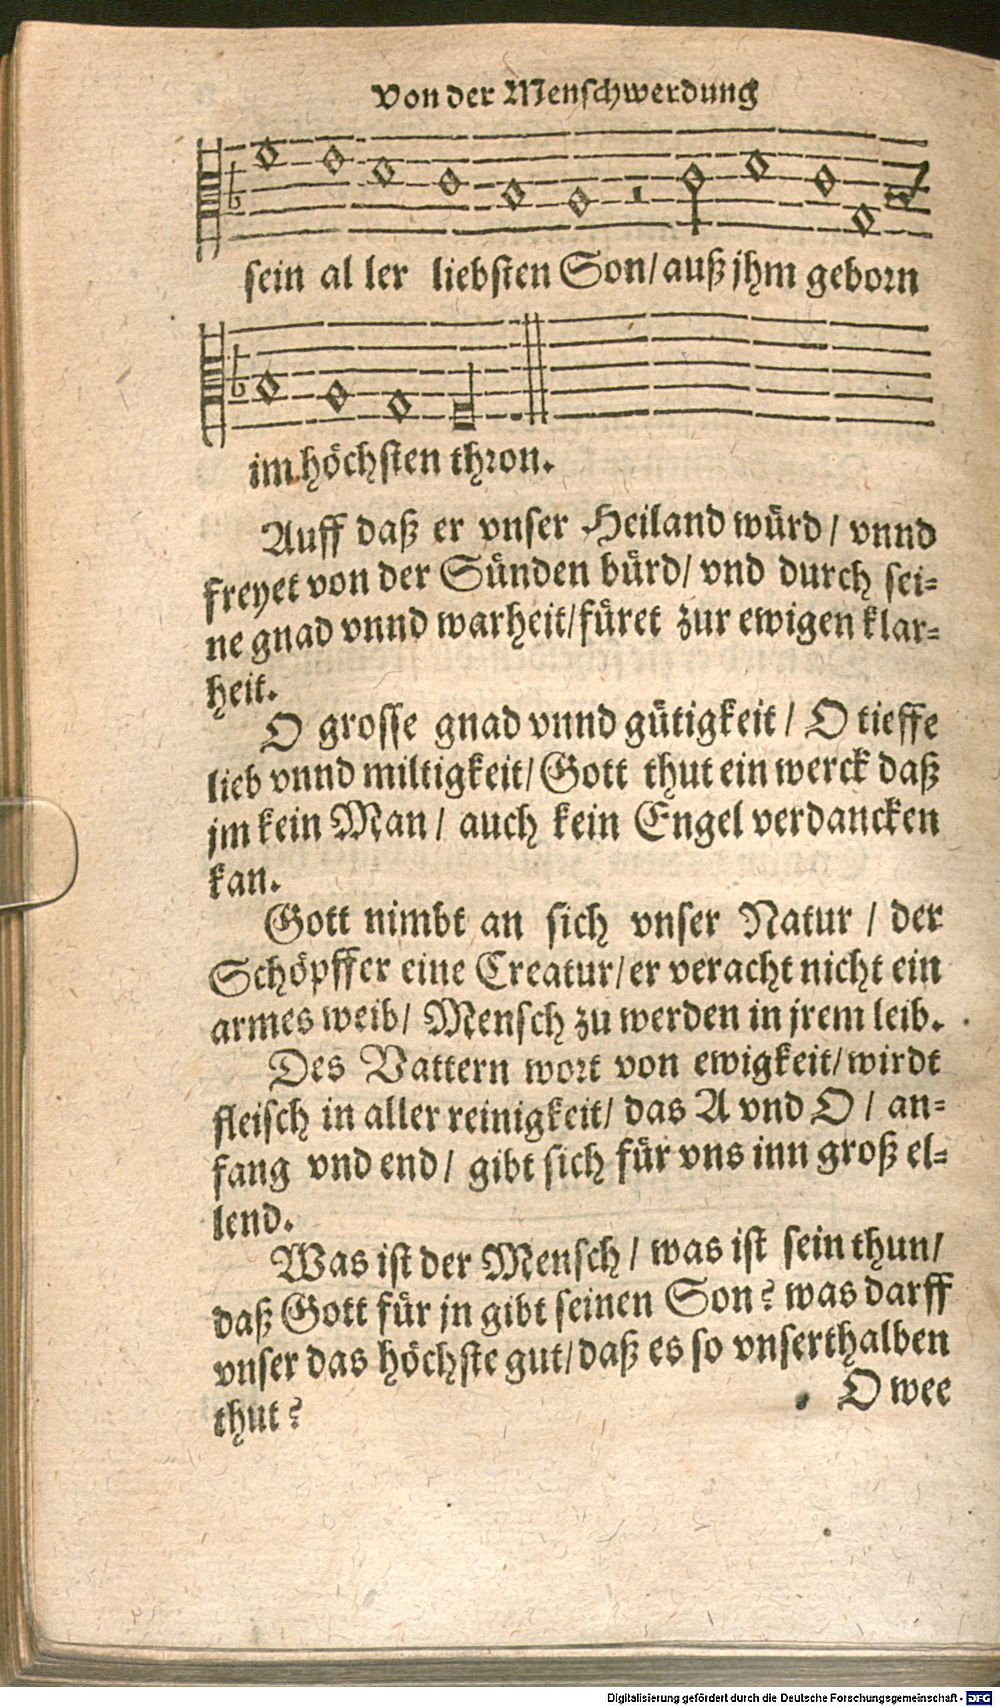 Von der Menschwerdung
sein al ler liebsten Son/ auß jhm geborn
im höchsten thron.
Auff daß er vnser Heiland würd/ vnnd
freyet von der Sünden bürd/ vnd durch sei-
ne gnad vnnd warheit/ füret zur ewigen klar-
heit.
O grosse gnad vnnd gütigkeit/ O tieffe
lieb vnnd miltigkeit/ Gott thut ein werck daß
jm kein Man/ auch kein Engel verdancken
kan.
Gott nimbt an sich vnser Natur/ der
Schöpffer eine Creatur/ er veracht nicht ein
armes weib/ Mensch zu werden in jrem leib.
Des Vattern wort von ewigkeit/ wirdt
fleisch in aller reinigkeit/ das A vnd O/ an-
fang vnd end/ gibt sich für vns inn groß el-
lend.
Was ist der Mensch/ was ist sein thun/
daß Gott für jn gibt seinen Son? was darff
vnser das höchste gut/ daß es so vnserthalben
thut?
O wee
Digitalisierung gefördert durch die Deutsche Forschungsgemeinschaft - DFG